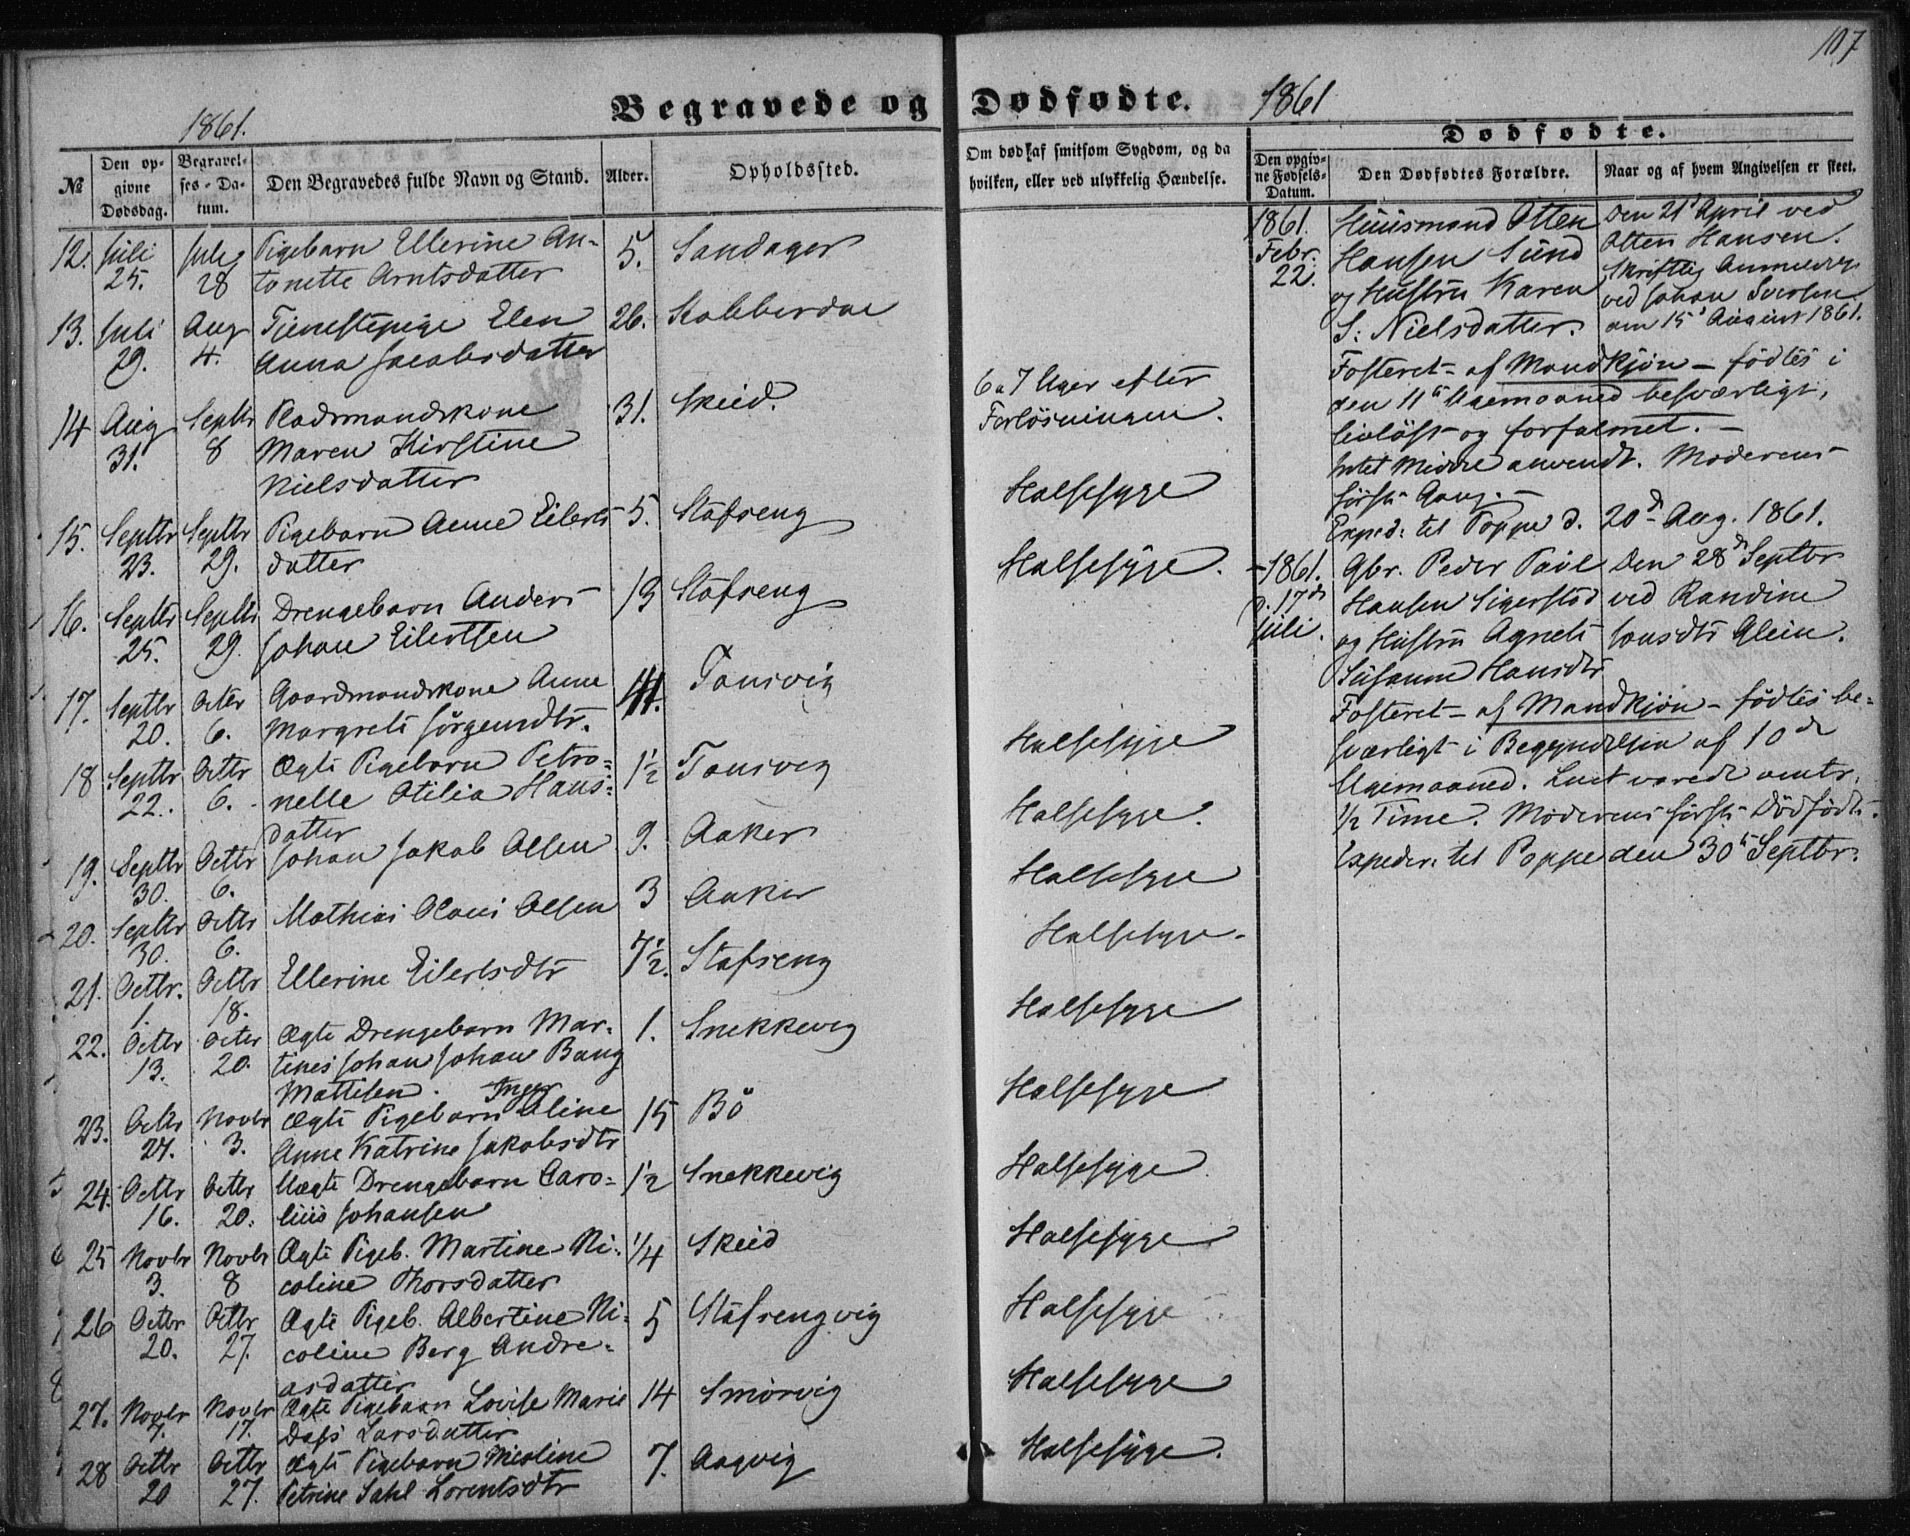 107
Begravede og Dødfødte.
1861.
1861
№
Den opgivne Dødsdag.
Begravelses-Datum.
Den Begravedes fulde Navn og Stand.
Alder.
Opholdssted.
Om død af smitsom Sygdom, og da
hvilken, eller ved ulykkelig Hændelse.
Dødfødte.
Den opgivne Fødsels-Datum.
Den Dødfødtes Forældre.
Naar og af hvem Angivelsen er skeet.
12. Juli 25. Juli 28 Pigebarn Ellerine An- 5. Sandager
tonette Arntsdatter
13. Juli 29. Aug 4. Tjenestepige Elen 26.
Anna Jacobsdatter
14 Aug 31. Septbr 8 Pladsmandskone 31. Skeid. 6 a 7 Uger efter
Maren Kirstine Forløsningen.
Nielsdatter
15. Septbr 23. Septbr 29. Pigebarn Anne Eilerts 5. Stafseng Halsesyge
datter
16. Septbr 25. Septbr 29. Drengebarn Anders 13 Stafseng Halsesyge.
Johan Eilertsen
17. Septbr 20. Octbr 6. Gaardmandskone Anne 41. Tonsvig
Margrete Jørgensdtr. Halsesyge
18 Septbr 22. Octbr 6. Ægte Pigebarn Petro- 1½ Tonsvig
nelle Otilia Hans- Halsesyge.
datter
19. Septbr 30. Octbr 6. Johan Jakob Olsen 9. Aaker Halsesyge
20. Septbr 30. Octbr 6. Mathias Olaus Olsen 3 Aaker Halsesyge.
21. Octbr. 1. Octbr 18. Ellerine Eilertsdtr 7½. Stafseng Halsesyge
22. Octbr 13. Octbr 20. Ægte Drengebarn Mar- 1. Snekkevig
tines Johan Johan Bang Halsesyge
Mattisen.
Inger
23. Octbr 27. Novbr 3. Ægte Pigebarn Oline 15 Bö Halsesyge
Anne Katrine Jakobsdtr
24. Octbr 16. Octbr 20. Uægte Drengebarn Caro- ½ Snekkevig
lius Johansen Halsesyge
25 Novbr 3. Novbr 8 Ægte Pigeb. Martine Ni- ¼ Skeid
coline Thorsdatter Halsesyge
26 Octbr 20. Octbr 27. Ægte Pigeb. Albertine Ni- 5 Stafsengvig
coline Berg Andre- Halsesyge
asdatter
27. Novbr 7. Novbr 17. Ægte Pigebarn Lovise Marie 14 Smörvig
Dass Larsdatter
28 Octbr 20 Octbr 27. Ægte Pigebarn Nicoline 7. Aagvig Halsesyge.
Petrine Dahl Lorentsdtr
1861. Febr. 22. Huusmand Otten Den 21 April ved
Hansen Sund Otten Hansen.
og Hustru Karen Skriftlig
S: Nielsdatter. ved Johan Iversen
am 15 August 1861.
Fosteret - af Mandkjøn - fødtes i
den 11te Ugemaaned besværligt,
livløst og
Intet Middel anvendt. Moderens
første Gang. -
Exped: til Poppe d. 20de Aug. 1861.
1861. d. 17de Juli. Gbr. Peder Paul Den 28de Septbr
Hansen Sigerstad ved Randine
og Hustru Agnete Jonsdtr Glein.
Susanne Hansdtr
Fosteret - af Mandkjøn - fødtes be-
sværligt i Begyndelsen af 10de
Ugemaaned. Livet varede omtr.
½ Time. Moderens første Dødfødte.
Expeder. til Poppe den 30te Septbr.